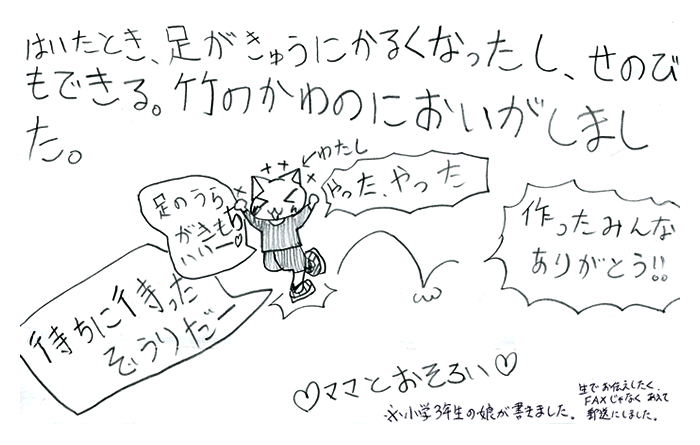 はいたとき、足がきゅうにかるくなったし、せのび
もできる。竹のかわのにおいがしまし
た。
←わたし
やった、やった
足のうら
がきもち
いいー♡
作ったみんな
ありがとう!!
待ちに待った
ぞうりだー
♡ママとおそろい♡
※小学3年生の娘が書きました。
生でお伝えしたく、
FAXじゃなく あえて
郵送にしました。